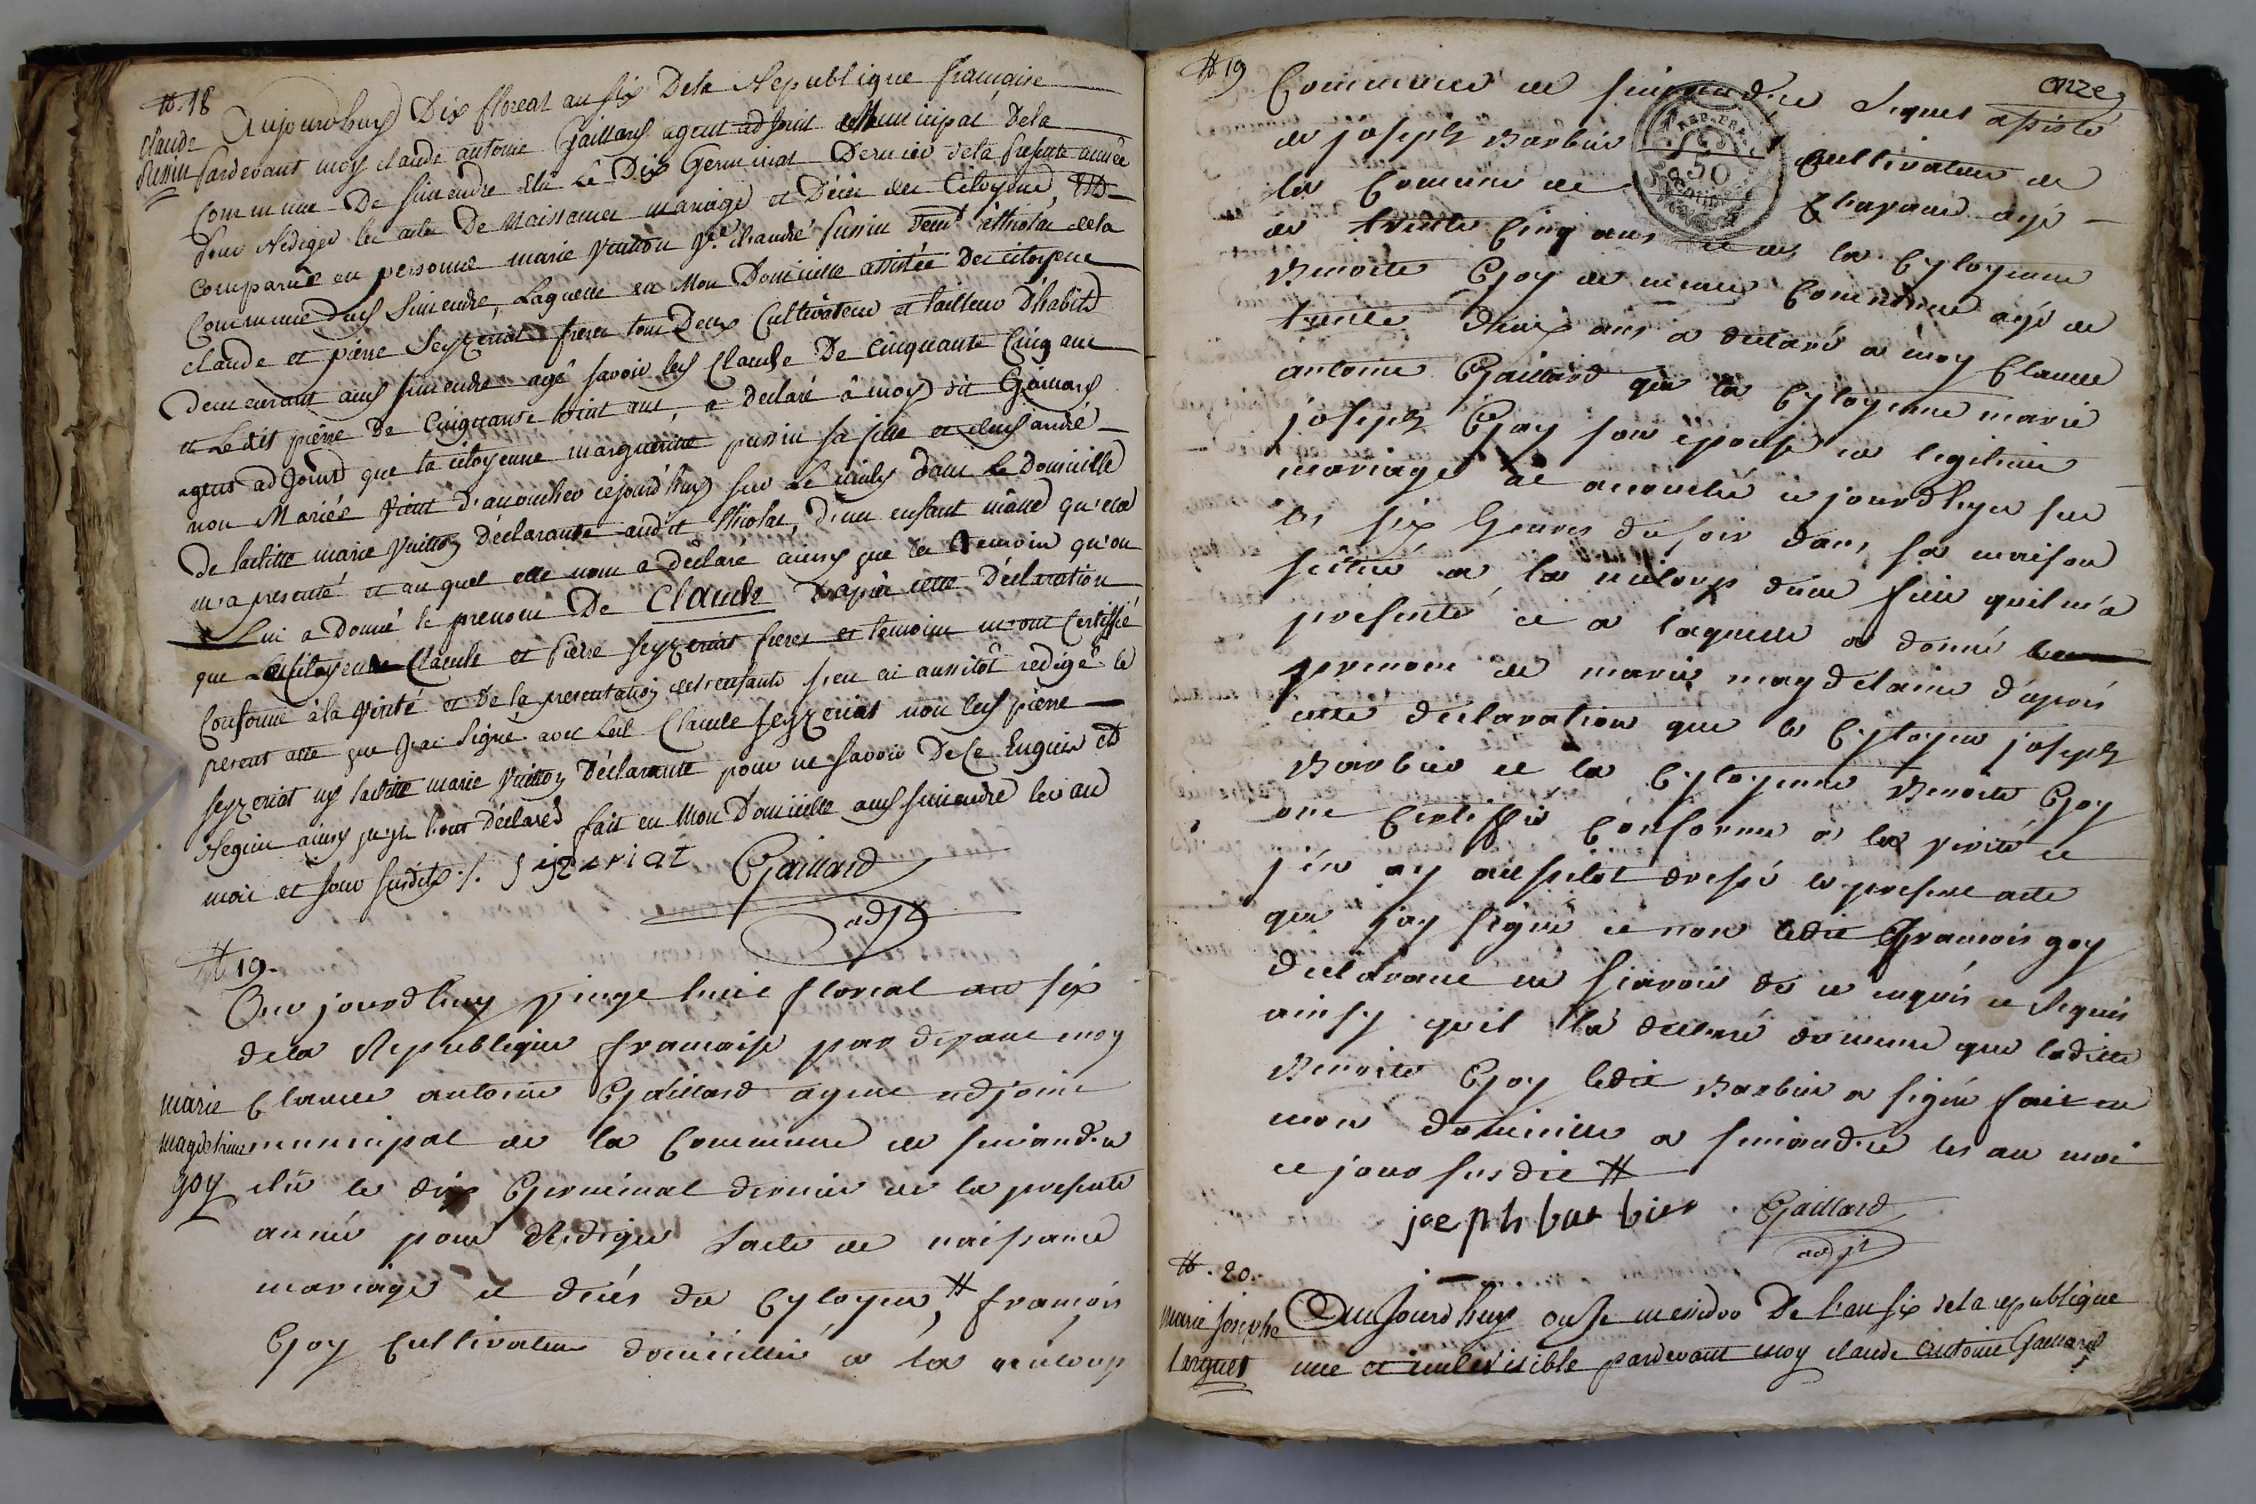 # 18
claude
pussin
Aujourdhuy Dix floreal an six Dela Republique francoise
Pardevant moy claude antoine Gaillard agent adjoint Municipal dela
Commune De simendre Elu Le Dix Germinal Dernier dela presente année
pour Rediger les actes De Naissances mariage et Décès des Citoyens, Est
Comparuë en personne marie Vuitton Ve. andré pussin dem.t à Nicolas dela
Commune dud Simendre, Laquelle en Mon Domicille assistée Des citoyens
claude et pierre Seyzeriat freres tous Deux Cultivateurs et tailleur D'habits
Demeurant aud simendre agé savoir led Claude De cinquante Cinq ans
et Ledit pierre De Cinquante huit ans, a declaré à moy dit Gaillard
agent adjoint que la citoyenne marguerite pussin sa fille et dud andré
non Mariée Vient d'accoucher cejourd'huy sur Le midy dans Le Domicille
De laditte marie Vuitton Déclarante audit Nicolas, d'un enfant mâle qu'elle
m'a presenté et au quel elle nous a declaré ainsy que les témoins qu'on
Lui a Donné le prenom De Claude D'après cette Déclaration
que Les Citoyens Claude et Pierre Seyzeriat freres et temoins m'ont Certiffié
Conforme à la Vérité et De la presentation dud enfant j'en ai aussitôt redigé le
present acte que J'ai Signé avec led. Claude Seyzeriat non led pierre
Seyzeriat ny laditte marie Vuitton Déclarante pour ne savoir De Ce Enquis et
Requis ainsy qu'ils l'ont Déclaré fait en Mon Domicille aud simendre les an
mois et jour susdits ./. sizeriat Gaillard
adjt
# 19.
Aujourdhuy vingt huit floreal an six
dela Republique francaise par devant moy
marie
magdelaine
goy
Claude antoine Gaillard agent adjoint
municipal de la Commune de simandre
elu le dix Germinal dernier de la presente
année pour Rediger lacte de naissance
mariage et decès du Cytoyen, # françois
Goy Cultivateur domicillié a la
# 19
onze
Commune de simandre Lequel assisté
de joseph Barbier Cultivateur de
la Commune de Chavanne agé
de trente Cinq ans et de la Cytoyenne
Benoite Goy de meme Commune agé de
trente deux ans a declaré a moy Claude
antoine Gaillard que la Cytoyenne marie
joseph Goy son epouse en legitime
mariage est accouché ce jourdhuy sur
les six heures du soir dans sa maison
scitué a la d'une fille quil m'a
presenté et a laquelle a donné le
prenom de marie magdelaine d'aprés
cette declaration que le Cytoyen joseph
Barbier et la Cytoyenne Benoite Goy
ont Certiffié Conforme a la verité et
j'en ay aussitot dressé le present acte
que jay signé et non ledit françois goy
declarant ne scavoir de ce enquis et Requis
ainsy quil la declaré de meme que laditte
Benoite Goy ledit Barbier a signé fait en
mon domicille a simandre les an moi
et jour susdit #
joseph barbier Gaillard
adjt
# . 20.
marie josephe
Larguet
Aujourd'huy onze messidor De l'an six dela republique
une et indivisible pardevant moy claude antoine Gaillard
REP. FRA.
50
CENTIMES